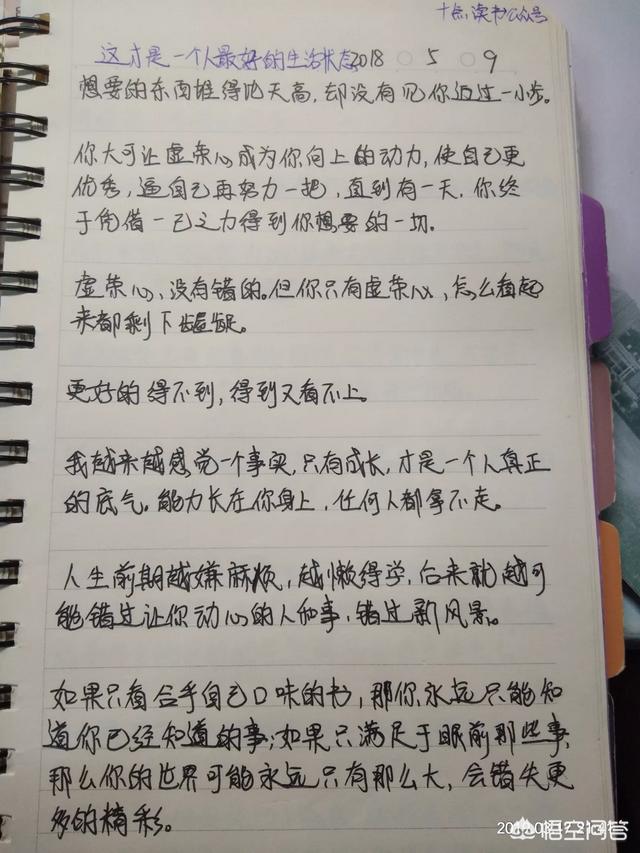 十点读书公众号
这才是一个人最好的生活状态 2018 5 9
想要的东西堆得比天高,却没有见你迈过一小步。
你大可让虚荣心成为你向上的动力,使自己更
优秀,逼自己再努力一把,直到有一天,你终
于凭借一己之力得到你想要的一切。
虚荣心,没有错的。但你只有虚荣心,怎么看起
来都剩下龌龊。
更好的得不到,得到又看不上。
我越来越感觉一个事实,只有成长,才是一个人真正
的底气。能力长在你身上,任何人都拿不走。
人生前期越嫌麻烦,越懒得学,后来就越可
能错过让你动心的人和事,错过新风景。
如果只看合乎自己口味的书,那你永远只能知
道你已经知道的事;如果只满足于眼前那些事,
那么你的世界可能永远只有那么大,会错失更
多的精彩。
悟空问答